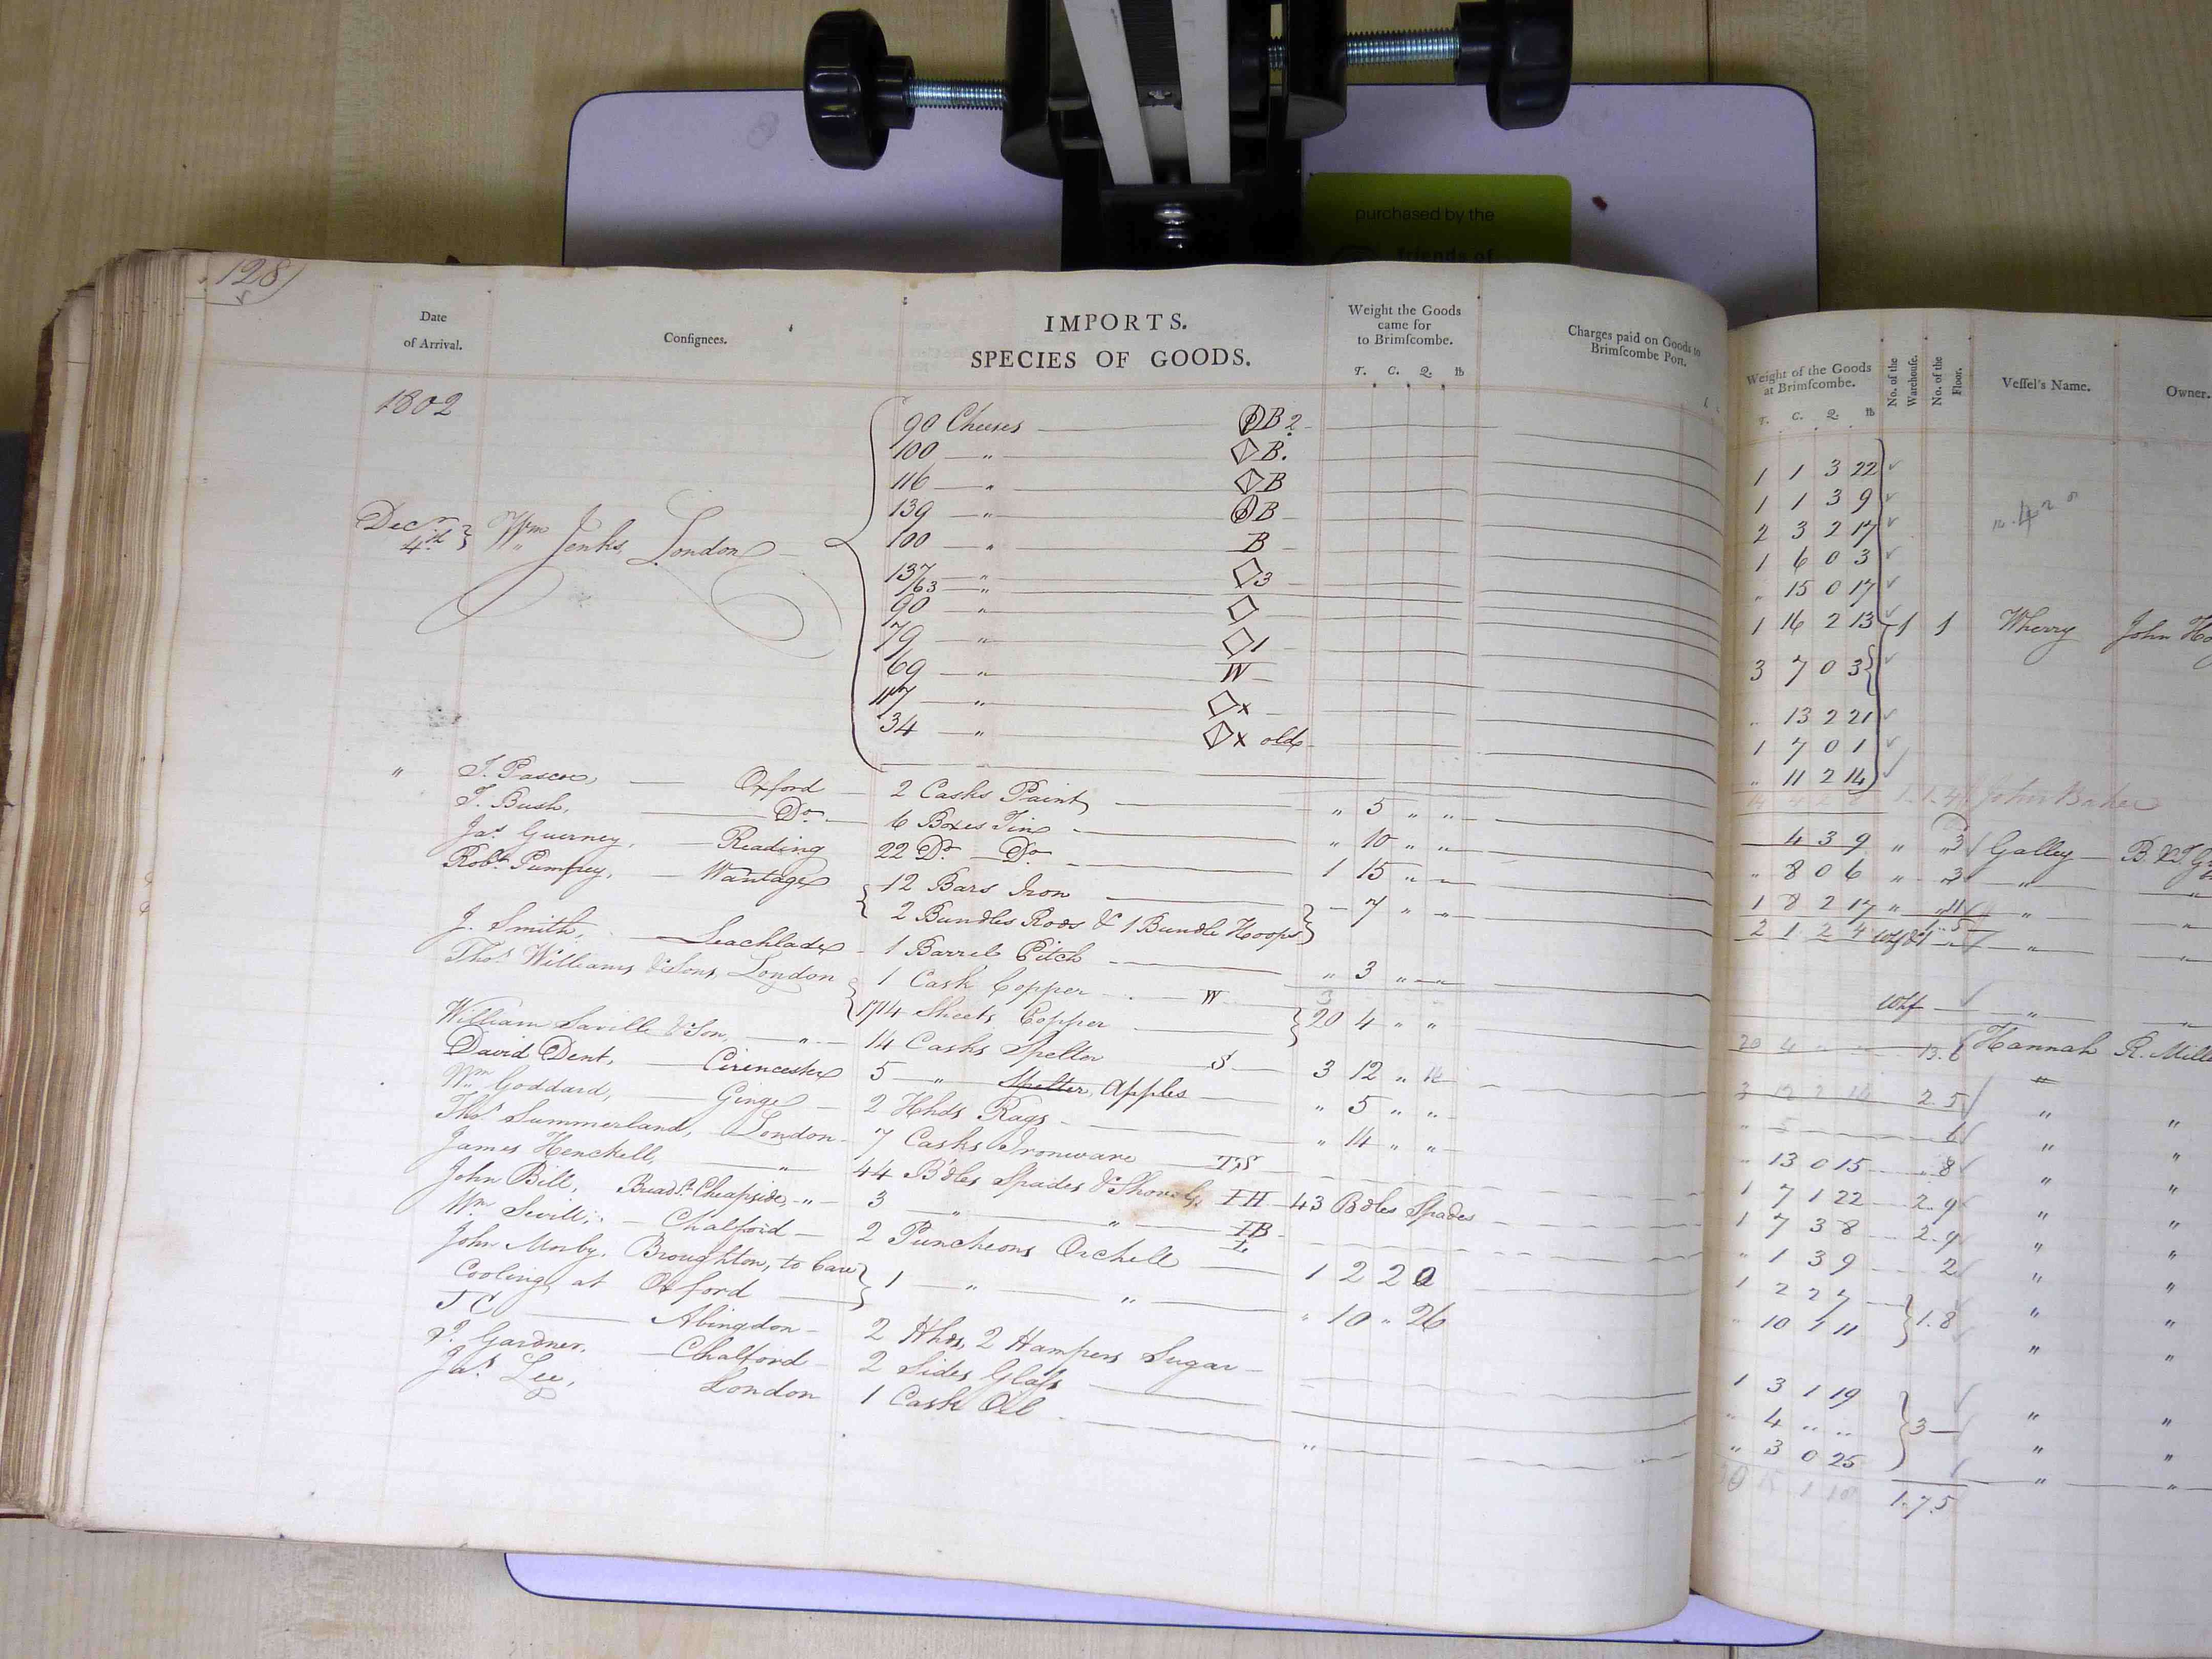 purchased by the
friends of
128
Date
of Arrival.
Consignees.
IMPORTS.
SPECIES OF GOODS.
Weight the Goods
came for
to Brimscombe.
T. C. Q. lb
Charges paid on Goods to
Brimscombe Port.
Weight of the Goods
at Brimscombe.
T. C. Q. lb
No. of the
Warehouse.
No. of the
Floor.
Vessel's Name.
Owner.
1802
90 Cheeses B 2 1 1 3 22
100 " B. 1 1 3 9
116 " B 2 3 2 17
139 " B 1 6 0 3
Decr 4th } Wm Jenks, London
100 " B " 15 0 17
137 " 3 1 16 2 13 1 1 Wherry John
163 "
90 " 3 7 0 3
79 " 1
69 " W " 13 2 21
117 " x 1 7 0 1
34 " x old " 11 2 14
John Baker
" T. Pascoe, Oxford 2 Casks Paint " 5 " " 4 3 9 " " 3 Galley
T. Bush, Do 6 Boxes Tin " 10 " " " 8 0 6 " " 3 "
Jas Guerney, Reading 22 Do Do 1 15 " " 1 8 2 17 " " "
Robt Pumfrey, Wantage { 12 Bars Iron
2 Bundles Rods & 1 Bundle Hoops } 7 " " 2 1 2 4 "
J. Smith, Leachlade 1 Barrel Pitch " 3 " " Whf "
Thos Williams & Sons, London { 1 Cask Copper W
1714 Sheets Copper } 20 4 " " 20 4 13.6 Hannah R. Mill
William Saville & Son, " 14 Casks Spelter S 3 12 " 14 3 12 2 14 2.5 "
David Dent, Cirencester 5 " Spelter, Apples " 5 " " "
Wm Goddard, Ginge 2 Hhds Rags " 14 " " " 13 0 15 8 "
Thos Summerland, London 7 Casks Ironware TS 1 7 1 22 2.9 "
James Henckell, " 44 Bdles Spades & Shovels. IH 43 Bdles Spades 1 7 3 8 2.9 "
John Bill, Bread St Cheapside, " 3 " " IB " 1 3 9 2 "
Wm Sevill, Chalford 2 Puncheons Orchell 1 2 2 0 1 2 2 7 "
John Morby. Broughton, to Care }
Cooling, at Oxford 1 " " " 10 " 26 " 10 1 11 } 1.8 "
J C Abingdon 2 Hhds, 2 Hampers Sugar 1 3 1 19 "
Gardner, Chalford 2 Sides Glass " 4 " " } 3 "
Jas Lee, London 1 Cask Oil " " 3 0 25 "
1.7.5